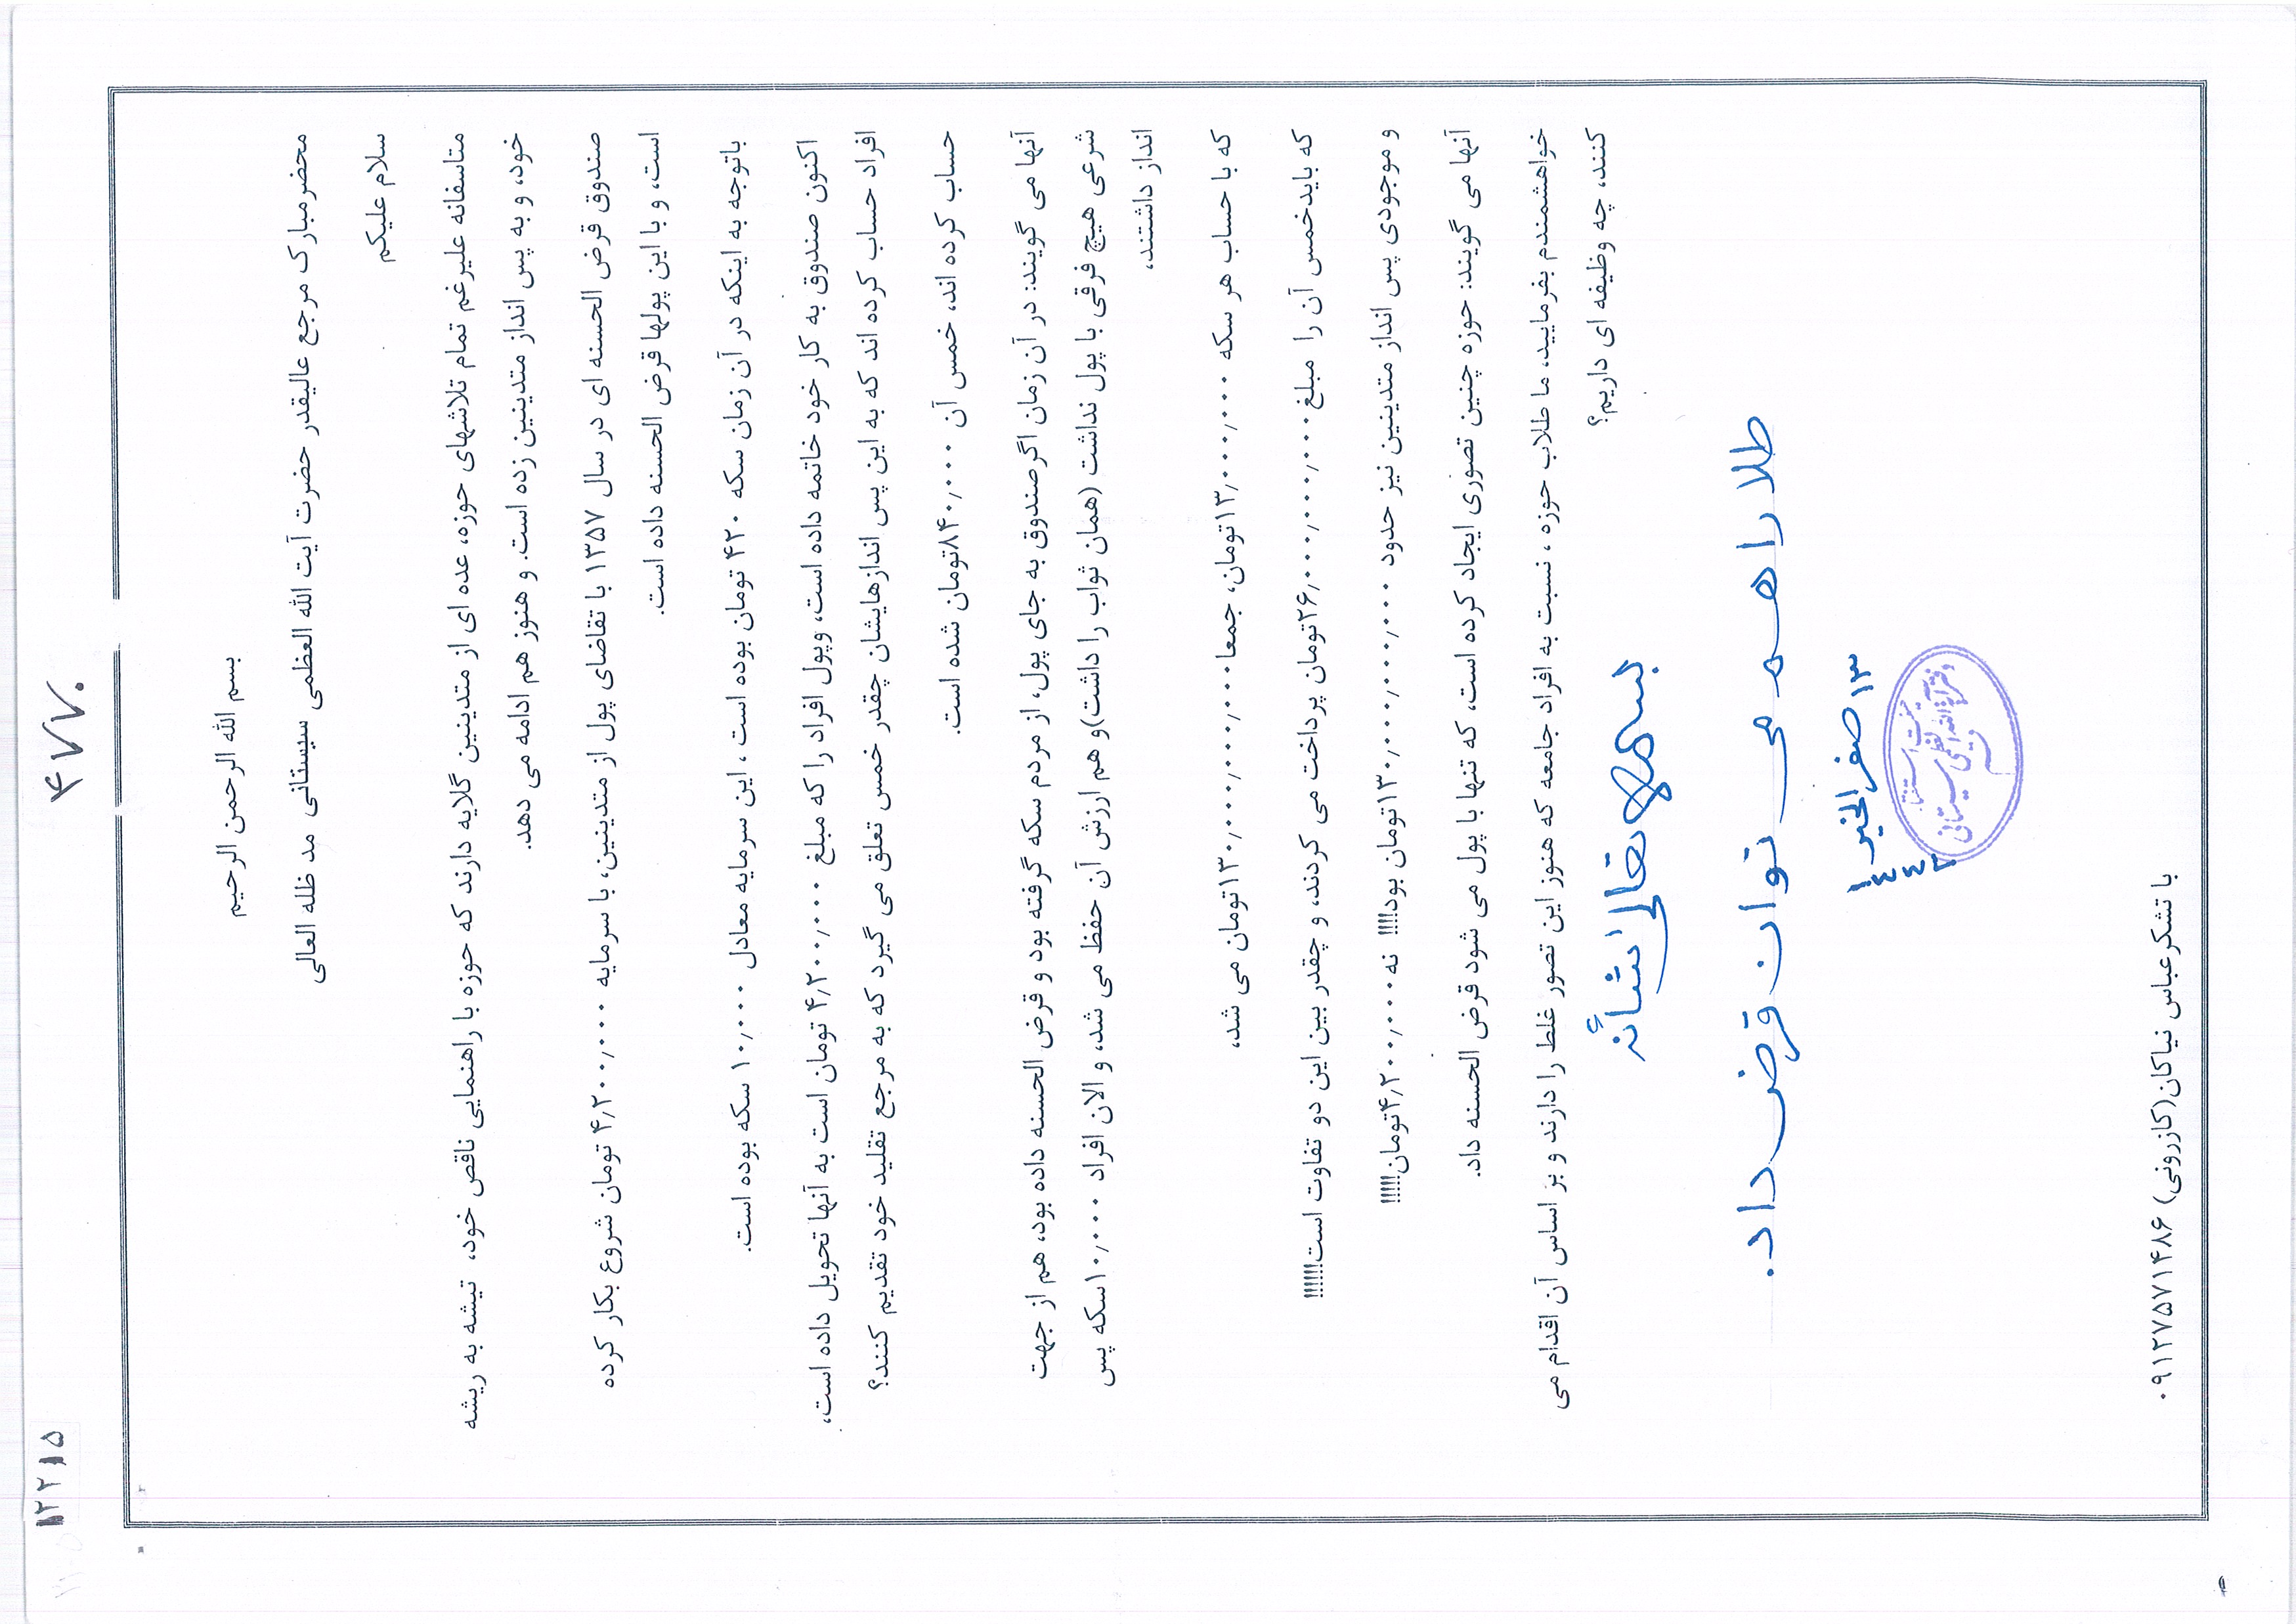 ۴۷۷۰
۱۲۲۱۵
بسم الله الرحمن الرحیم
محضر مبارک مرجع عالیقدر حضرت آیت الله العظمی سیستانی مد ظله العالی
سلام علیکم
متاسفانه علیرغم تمام تلاشهای حوزه، عده ای از متدینین گلایه دارند که حوزه با راهنمایی ناقص خود، تیشه به ریشه
خود، و به پس انداز متدینین زده است. و هنوز هم ادامه می دهد.
صندوق قرض الحسنه ای در سال ۱۳۵۷ با تقاضای پول از متدینین، با سرمایه ۴٫۲۰۰٫۰۰۰ تومان شروع بکار کرده
است، و با این پولها قرض الحسنه داده است.
باتوجه به اینکه در آن زمان سکه ۴۲۰ تومان بوده است ، این سرمایه معادل ۱۰٫۰۰۰ سکه بوده است.
اکنون صندوق به کار خود خاتمه داده است، وپول افراد را که مبلغ ۴٫۲۰۰٫۰۰۰ تومان است به آنها تحویل داده است،
افراد حساب کرده اند که به این پس اندازهایشان چقدر خمس تعلق می گیرد که به مرجع تقلید خود تقدیم کنند؟
حساب کرده اند، خمس آن ۸۴۰٫۰۰۰تومان شده است.
آنها می گویند: در آن زمان اگرصندوق به جای پول، از مردم سکه گرفته بود و قرض الحسنه داده بود، هم از جهت
شرعی هیچ فرقی با پول نداشت (همان ثواب را داشت)و هم ارزش آن حفظ می شد، و الان افراد ۱۰٫۰۰۰سکه پس
انداز داشتند،
که با حساب هر سکه ۱۳٫۰۰۰٫۰۰۰تومان، جمعا۱۳۰٫۰۰۰٫۰۰۰٫۰۰۰تومان می شد،
که بایدخمس آن را مبلغ ۲۶٫۰۰۰٫۰۰۰٫۰۰۰تومان پرداخت می کردند، و چقدر بین این دو تفاوت است!!!!!!
و موجودی پس انداز متدینین نیز حدود ۱۳۰٫۰۰۰٫۰۰۰٫۰۰۰تومان بود!!!! نه ۴٫۲۰۰٫۰۰۰تومان!!!!!
آنها می گویند: حوزه چنین تصوری ایجاد کرده است، که تنها با پول می شود قرض الحسنه داد.
خواهشمندم بفرمایید، ما طلاب حوزه ، نسبت به افراد جامعه که هنوز این تصور غلط را دارند و بر اساس آن اقدام می
کنند، چه وظیفه ای داریم؟
بسمه تعالی شأنه
طلا را هم می توان قرض داد.
۱۳ صفر الخیر
۱۴۴۳
با تشکر عباس نیاکان(کازرونی) ۰۹۱۲۷۵۷۱۴۸۶